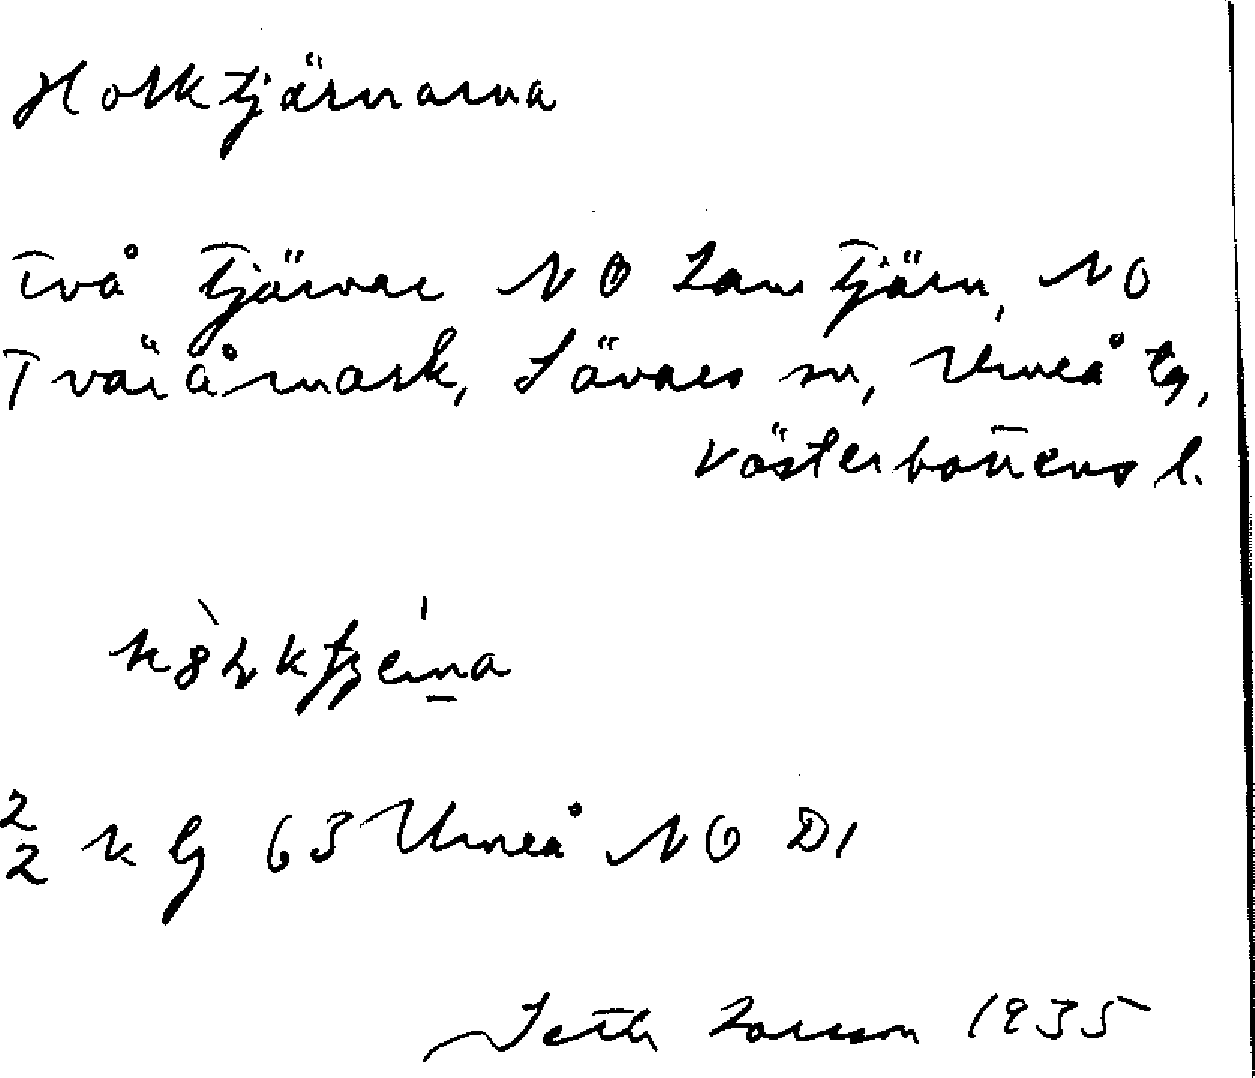 Holktjärnarna
Två tjärnar NO Lamtjärn, NO
Tväråmark, Sävars sn, Umeå tg,
Västerbottens l.
2/2 kg 63 Umeå NO D1
Seth Larsson 1935